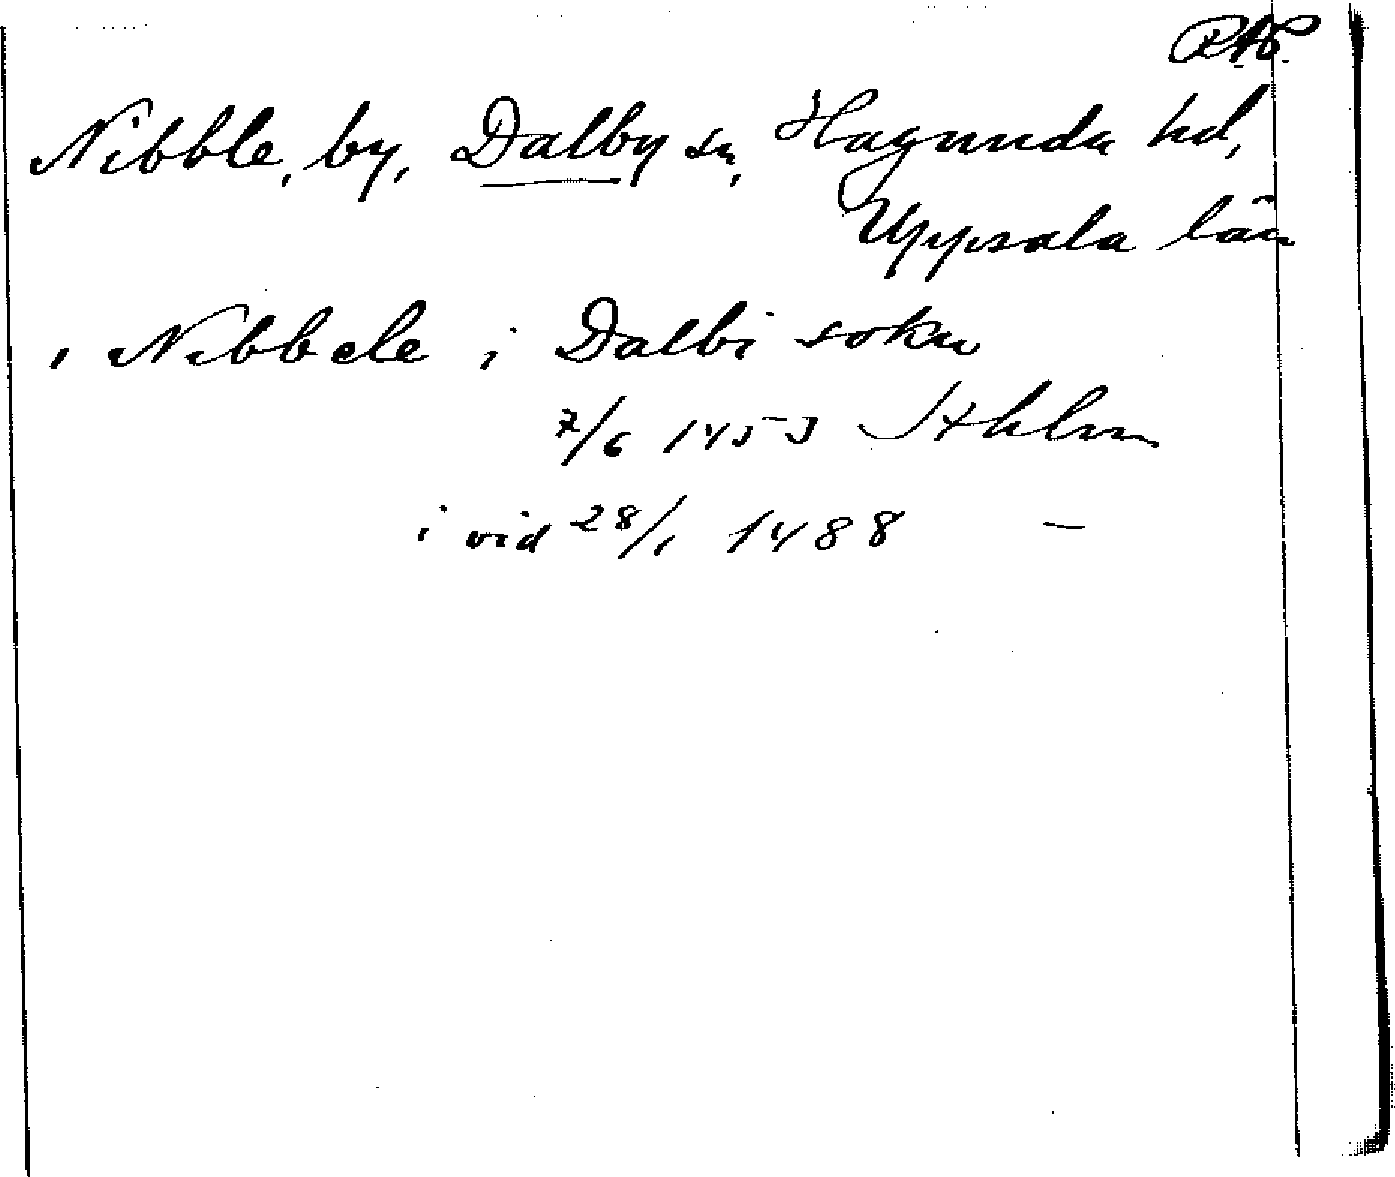 RAP
Nibble, by, Dalby sn, Hagunda hd,
Uppsala län
i Nibbele i Dalbi sokn
7/6 1453 Sthlm
i vid 28/1 1488 —